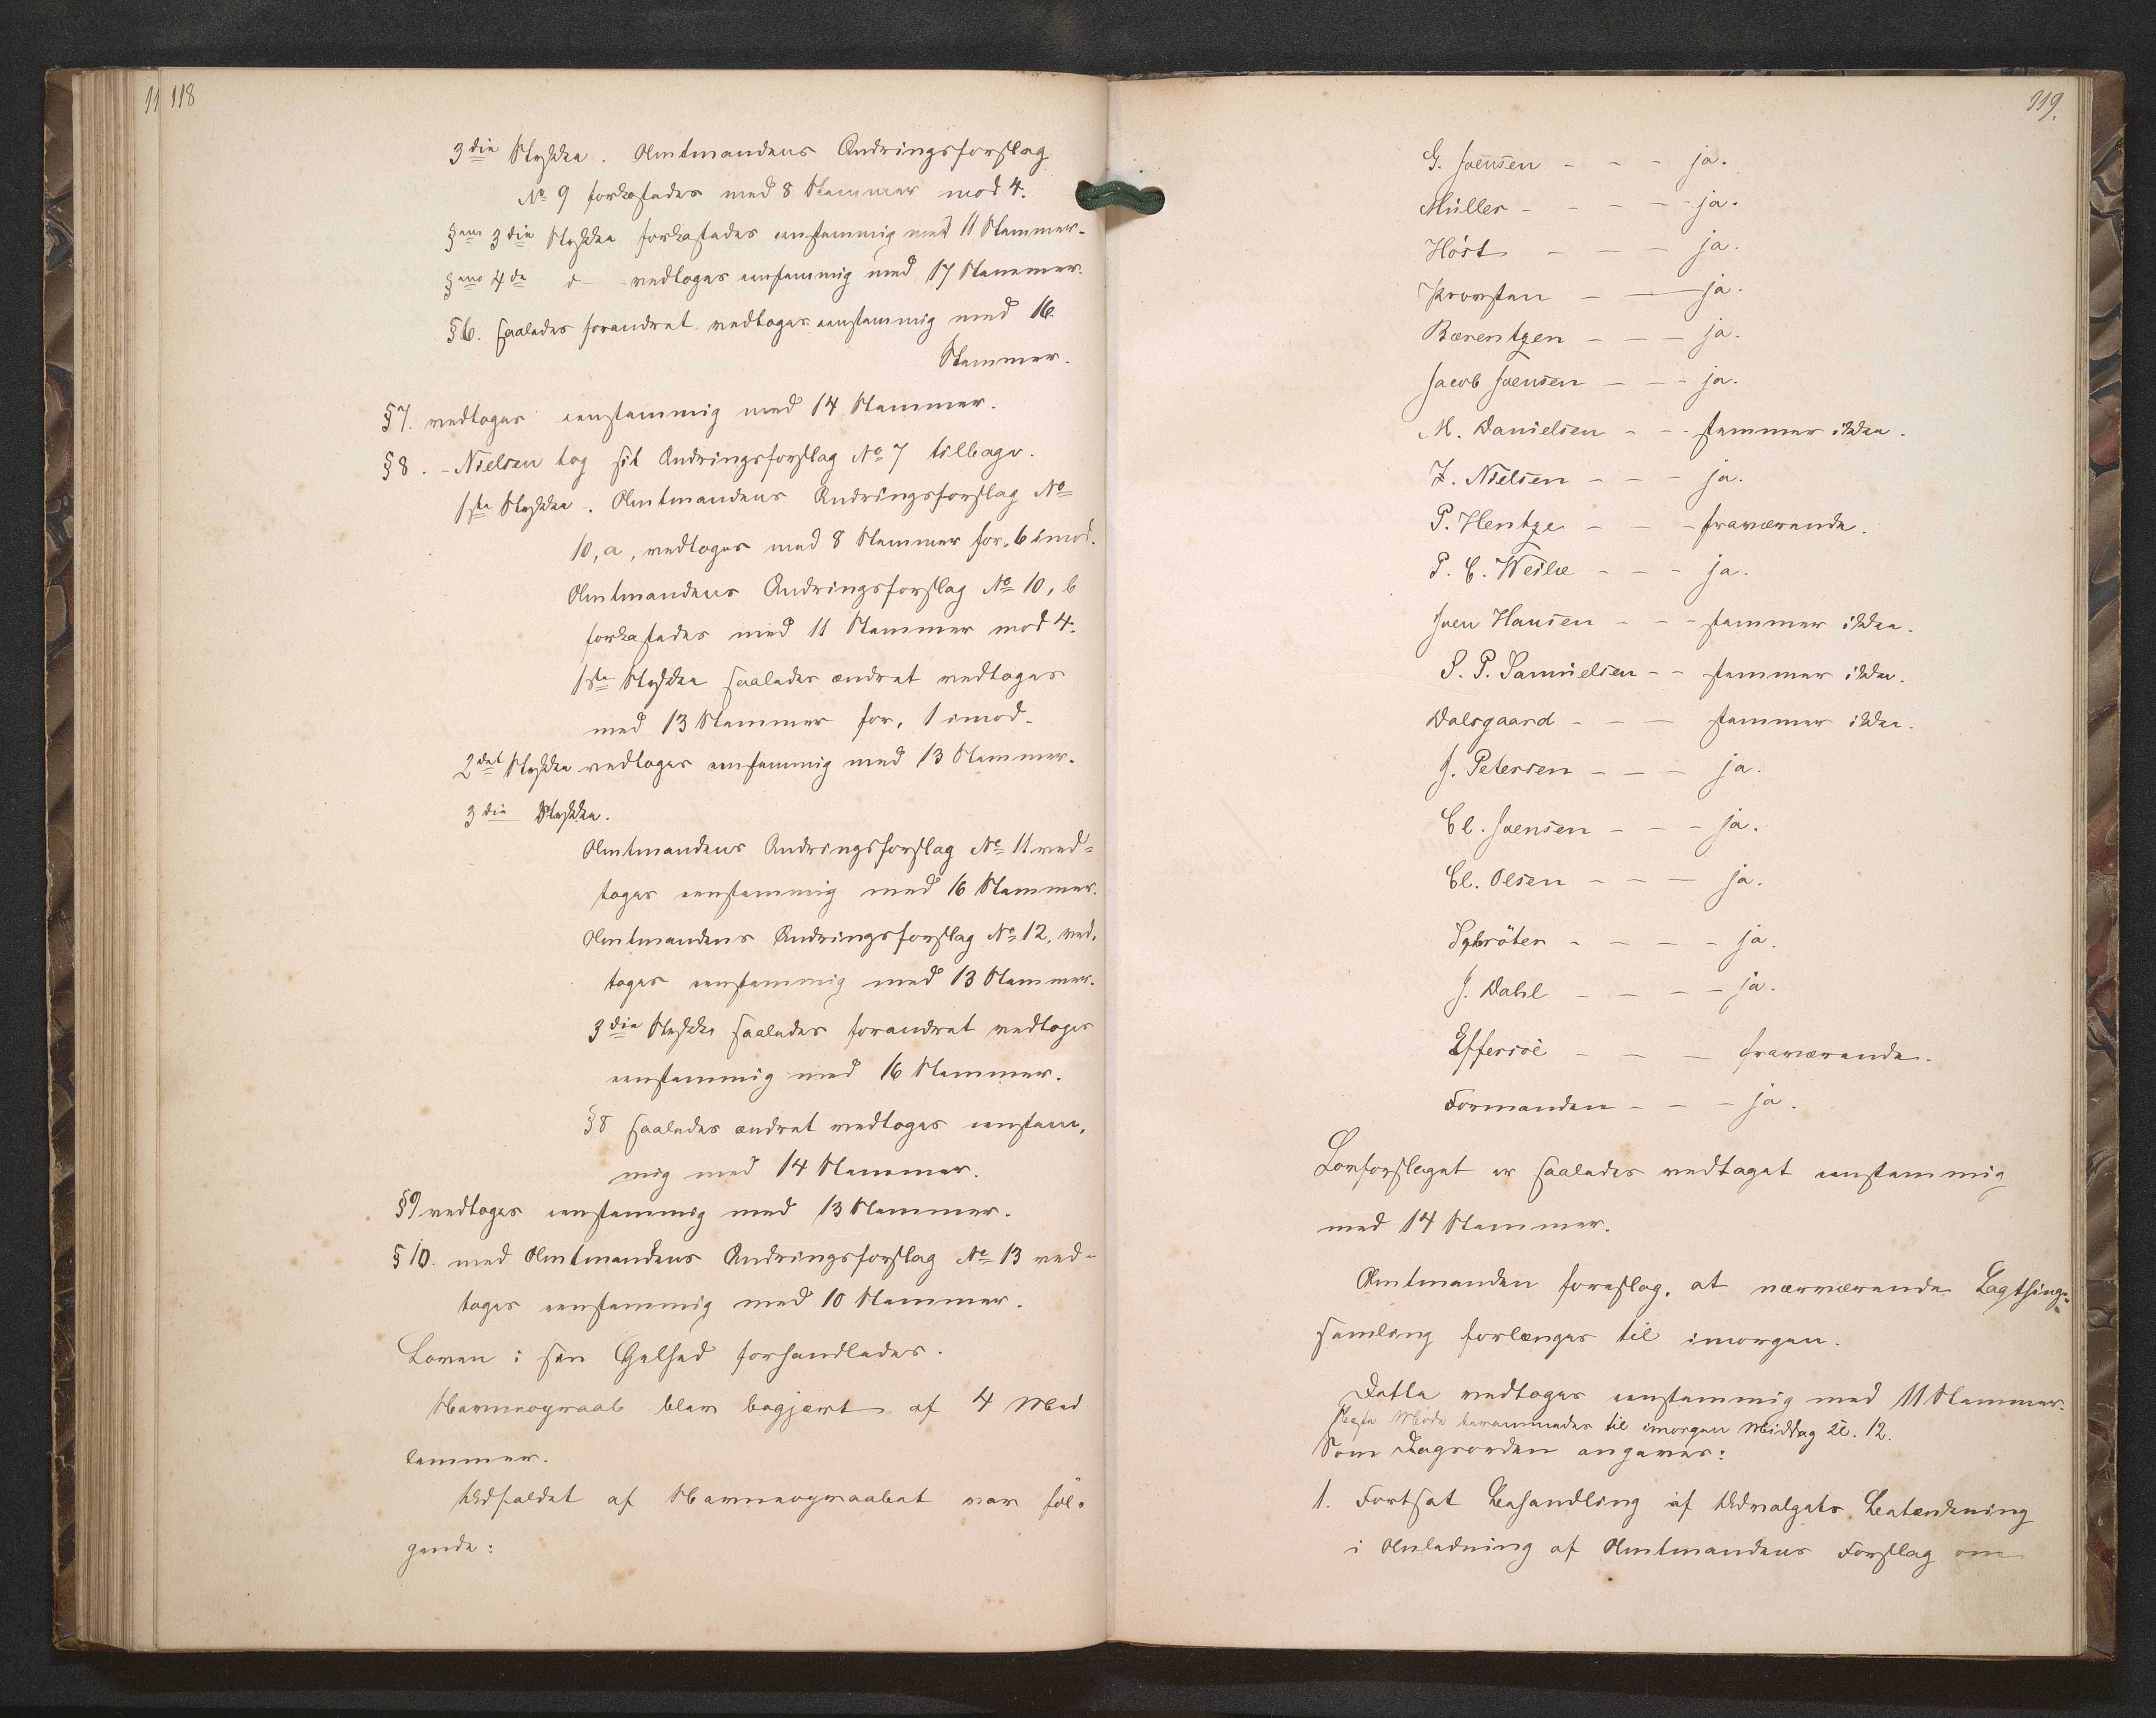 11 118
3die Stykke. Amtmandens Ændringsforslag
No 9 forkastedes med 8 Stemmer mod 4.
§ens 3die Stykke forkastedes eenstemmig med 11 Stemmer.
§ens 4de d- vedtoges eenstemmig med 17 Stemmer.
§6. saaledes forandret vedtoges eenstemmig med 16
Stemmer.
§7. vedtoges eenstemmig med 14 Stemmer.
§8. - Nielsen tog sit Ændringsforslag No 7 tilbage.
1ste Stykke. Amtmandens Ændringsforslag No
10, a, vedtoges med 8 Stemmer for, 6 imod.
Amtmandens Ændringsforslag No 10, b
forkastedes med 11 Stemmer mod 4.
1ste Stykke saaledes ændret vedtoges
med 13 Stemmer for, 1 imod.
2det Stykke vedtoges eenstemmig med 13 Stemmer.
3die Stykke.
Amtmandens Ændringsforslag No 11 ved=
toges eenstemmig med 16 Stemmer.
Amtmandens Ændringsforslag No 12, ved,
toges eenstemmig med 13 Stemmer.
3die Stykke saaledes forandret vedtoges
eenstemmig med 16 Stemmer.
§8 saaledes ændret vedtoges eenstem,
mig med 14 Stemmer.
§9 vedtoges eenstemmig med 13 Stemmer.
§10. med Amtmandens Ændringsforslag No 13 ved-
toges eenstemmig med 10 Stemmer.
Loven i sin Helhed forhandledes.
Navneopraab blev begjært af 4 Med
lemmer.
Udfaldet af Navneopraabet var føl-
gende:
119.
G. Joensen - - - ja.
Müller - - - - ja.
Høst - - - ja.
Provsten - - ja.
Bærentzen - - - ja.
Jacob Joensen - - - ja.
M. Danielsen - - - stemmer ikke.
Z. Nielsen - - - ja.
P. Hentze - - - fraværende.
P. C. Weihe - - - ja.
Joen Hansen - - - stemmer ikke.
S. P. Samuelsen - - stemmer ikke.
Dalsgaard - - - stemmer ikke.
J. Petersen - - - ja.
Cl. Joensen - - - ja.
Cl. Olsen - - - ja.
Schrøter - - - - ja.
J. Dahl - - - - ja.
Effersøe - - - fraværende.
Formanden - - - ja.
Lovforslaget er saaledes vedtaget eenstemmig
med 14 Stemmer.
Amtmanden foreslog, at nærværende Lagthings-
samling forlænges til imorgen.
Dette vedtoges eenstemmig med 11 Stemmer.
Næste Møde berammedes til imorgen Middag Kl. 12.
Som Dagsorden angaves:
1. Fortsat Behandling af Udvalgets Betænkning
i Anledning af Amtmandens Forslag om